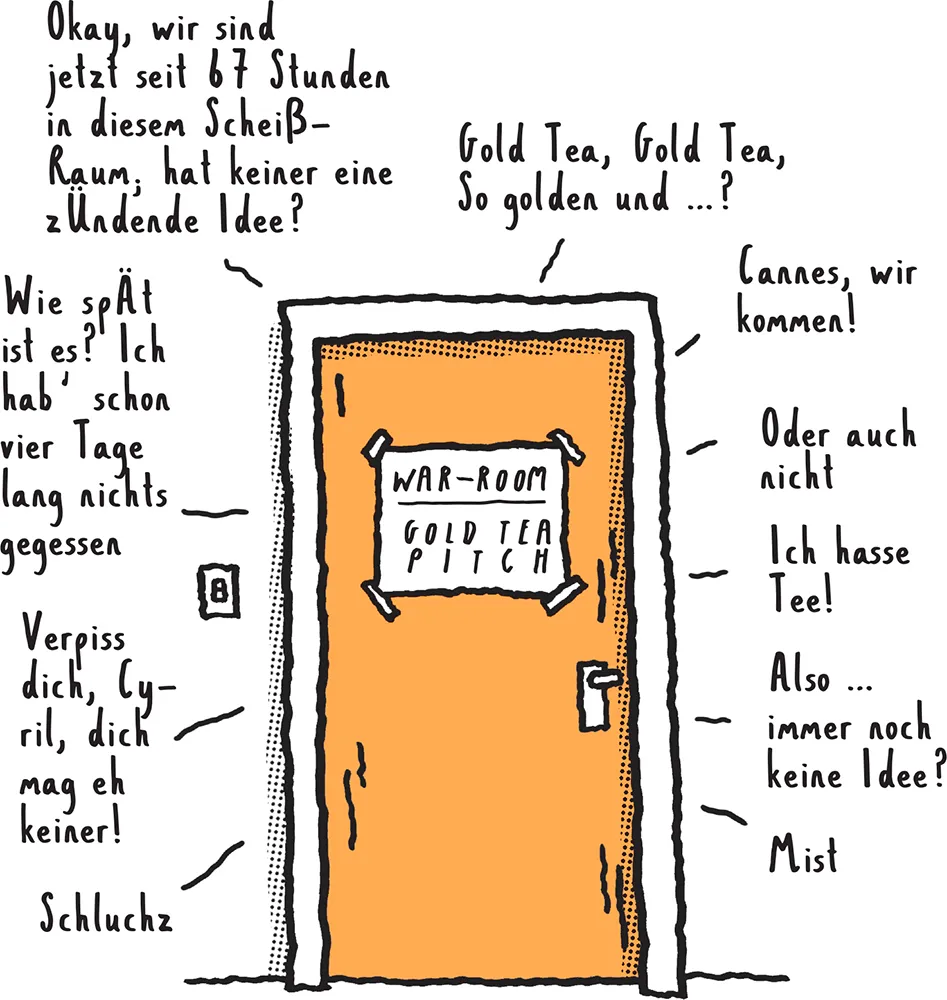 Okay, wir sind
jetzt seit 67 Stunden
in diesem Scheiß-
Raum, hat keiner eine
zÜndende Idee?
Gold Tea, Gold Tea,
So golden und ...?
Cannes, wir
kommen!
Wie spÄt
ist es? Ich
hab' schon
vier Tage
lang nichts
gegessen
Oder auch
nicht
WAR-ROOM
GOLD TEA
PITCH
Ich hasse
Tee!
Verpiss
dich, Cy-
ril, dich
mag eh
keiner!
Also ...
immer noch
keine Idee?
Mist
Schluchz